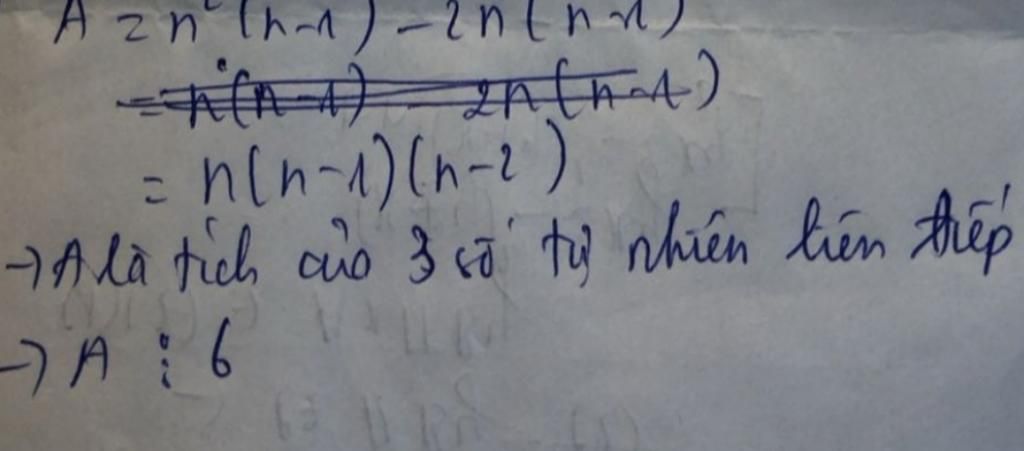 A = n²(n-1) - 2n(n-1)
= n(n-1) 2n(n-1)
= n(n-1)(n-2)
→ A là tích của 3 số tự nhiên liên tiếp
→ A ⋮ 6